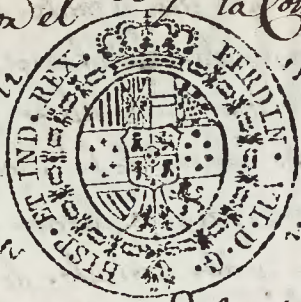 el la Co
FERDIN. VII. D. G. HISP. ET IND. REX.